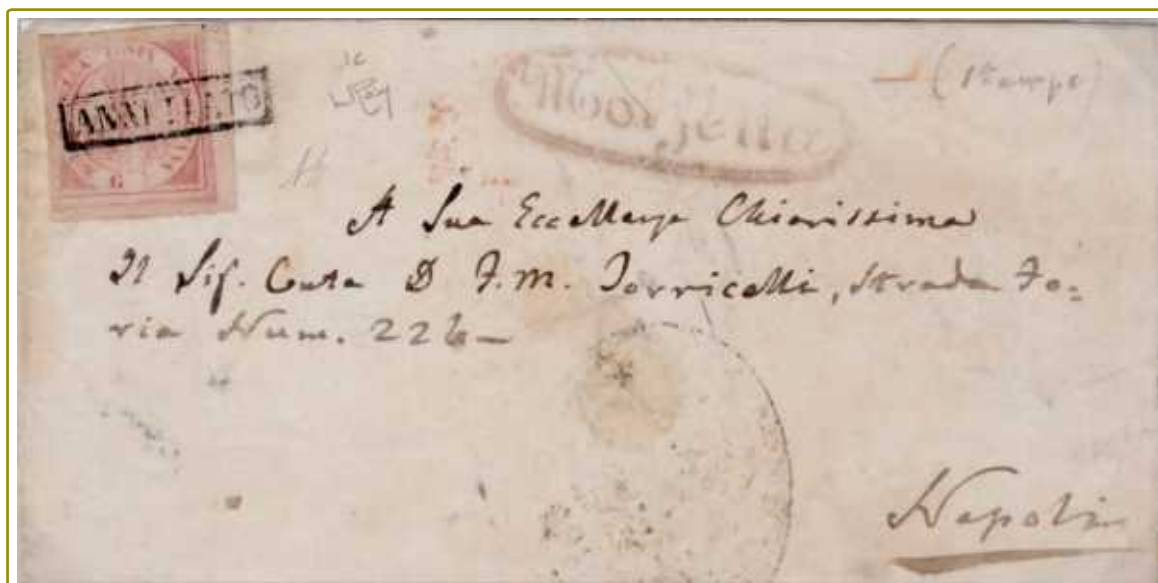 ANNULLATO
G
(Stamps)
A Sua Eccellenza Chiarissima
Il Sig. Conte D F. M. Torricelli, Strada Fo-
ria Num. 226-
Napoli